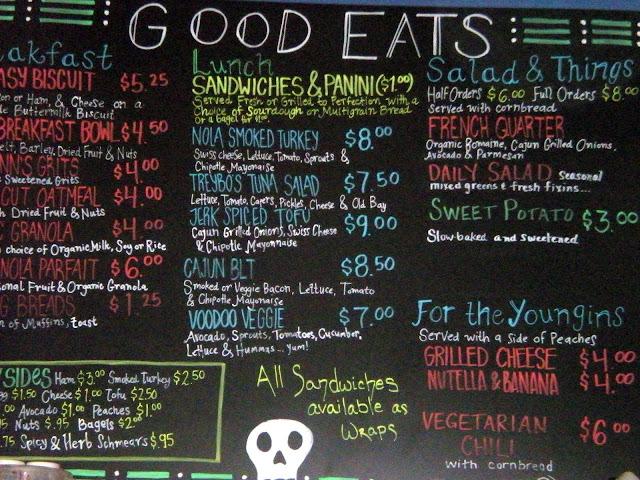 GOOD EATS
akfast
ASY BISCUIT $5.25
on or Ham, & Cheese on a
le Buttermilk Biscuit
BREAKFAST BOWL $4.50
elt, Barley, Dried Fruit & Nuts
NN'S GRITS $4.00
e Sweetened Grits
CUT OATMEAL $4.00
h Dried Fruit & Nuts
C GRANOLA $4.00
choice of Organic Milk, Soy or Rice
NOLA PARFAIT $6.00
onal Fruit & Organic Granola
G BREADS $1.25
n of Muffins, Toast
SIDES Ham $3.00 Smoked Turkey $2.50
gg $1.50 Cheese $1.00 Tofu $2.50
.00 Avocado $1.00 Peaches $1.00
.95 Nuts $.95 Bagels $2.00
.75 Spicy & Herb Schmears $.95
Lunch
SANDWICHES & PANINI ($1.00)
Served Fresh or Grilled to Perfection with a
Choice of Sourdough or Multigrain Bread
Or a bagel for $1.00
NOLA SMOKED TURKEY $8.00
Swiss cheese, Lettuce, Tomato, Sprouts &
Chipotle Mayonaise
TREYBO'S TUNA SALAD $7.50
Lettuce, Tomato, Capers, Pickles, Cheese & Old Bay
JERK SPICED TOFU $9.00
Cajun Grilled Onions, Swiss Cheese
& Chipotle Mayonnaise
CAJUN BLT $8.50
Smoked or Veggie Bacon, Lettuce, Tomato
& Chipotle Mayonaise
VOODOO VEGGIE $7.00
Avocado, Sprouts, Tomatoes, Cucumber,
Lettuce & Hummus...yum!
All Sandwiches
available as
Wraps
Salad & Things
Half Orders $6.00 Full Orders $8.00
Served with cornbread
FRENCH QUARTER
Organic Romaine, Cajun Grilled Onions,
Avocado & Parmesan
DAILY SALAD Seasonal
mixed greens & fresh fixins...
SWEET POTATO $3.00
Slow-baked and sweetened
For the Youngins
Served with a Side of Peaches
GRILLED CHEESE $4.00
NUTELLA & BANANA $4.00
VEGETARIAN
CHILI $6.00
with cornbread